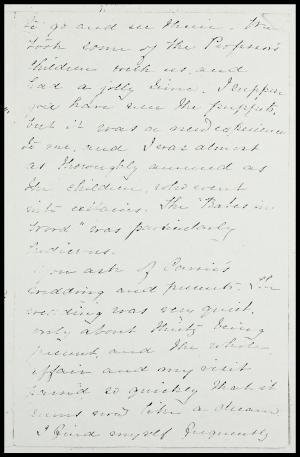 to go and see them. We
took some of the Professor's
children with us, and
had a jolly time. I suppose
you have seen the puppets,
but it was a new experience
to me, and I was almost
as thoroughly amused as
the children, who went
into ecstasies. The "Babes in
Wood" was particularly
ludicrous.
You ask of Connie's
wedding and presents. The
wedding was very quiet,
only about thirty being
present, and the whole
affair and my visit
passed so quickly that it
seems now like a dream
I find myself frequently